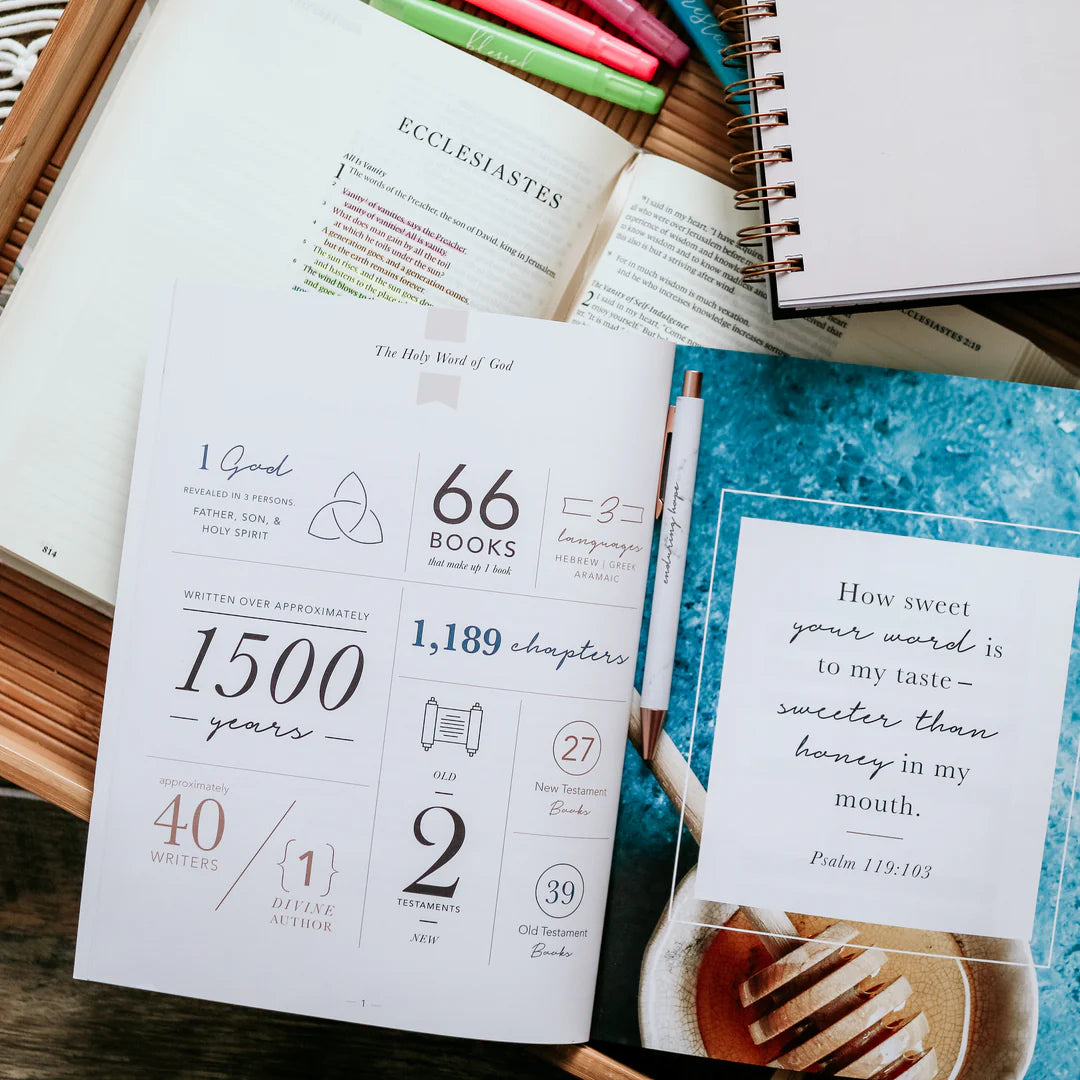 blessed
ECCLESIASTES
All Is Vanity
1 The words of the Preacher, the son of David, king in Jerusalem.
2 Vanity of vanities, says the Preacher,
vanity of vanities! All is vanity.
3 What does man gain by all the toil
at which he toils under the sun?
4 A generation goes, and a generation comes,
but the earth remains forever.
5 The sun rises, and the sun goes
and hastens to the place
6 The wind blows to
and goes
814
"I said in my heart, "I have
all who were over Jerusalem before
experience of wisdom and
to know wisdom and to know madness
this also is but a striving after wind.
For in much wisdom is much vexation,
and he who increases knowledge increases
The Vanity of Self-Indulgence
2 I said in my heart, "Come now,
enjoy yourself." But
"It is mad"
ECCLESIASTES 2:19
The Holy Word of God
1 God
REVEALED IN 3 PERSONS.
FATHER, SON, &
HOLY SPIRIT
66
BOOKS
that make up 1 book
3
languages
HEBREW | GREEK
ARAMAIC
WRITTEN OVER APPROXIMATELY
1500
— years —
1,189 chapters
approximately
40
WRITERS
{1}
DIVINE
AUTHOR
OLD
2
TESTAMENTS
NEW
27
New Testament
Books
39
Old Testament
Books
— 1 —
enduring hope
How sweet
your word is
to my taste—
sweeter than
honey in my
mouth.
Psalm 119:103